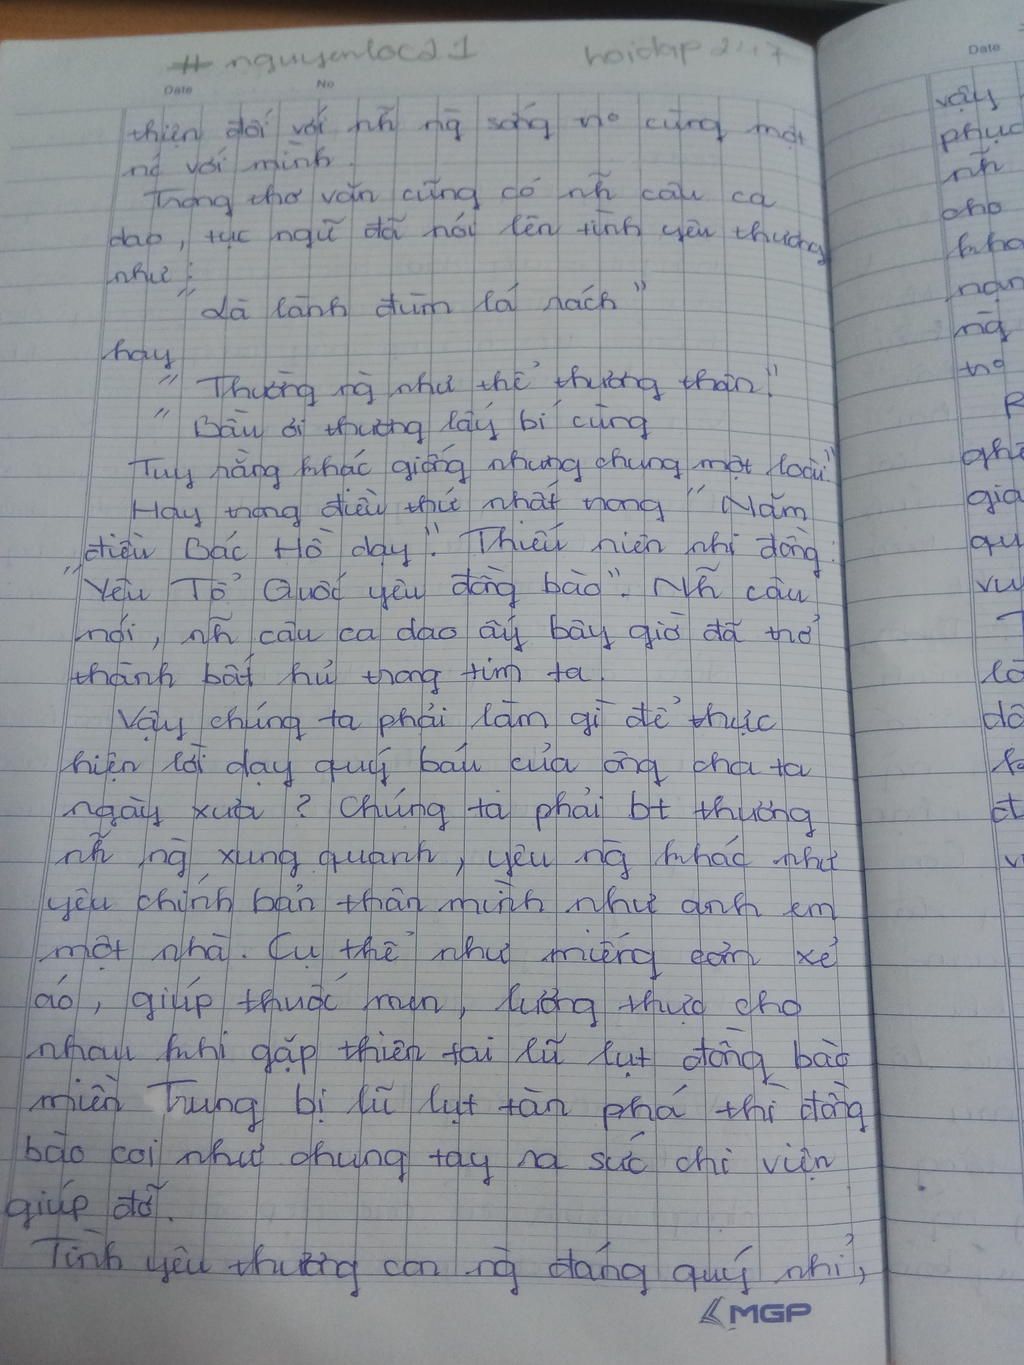 #nguyenloc21 hoidap247
Date No
thiện đối với nh~ ng̀ sống no cùng một
nó với mình.
Trong thơ văn cũng có nh~ câu ca
dao, tục ngữ đã nói lên tình yêu thương
như:
"Lá lành đùm lá rách"
hay
"Thương ng̀ như thể thương thân"
"Bầu ơi thương lấy bí cùng
Tuy rằng khác giống nhưng chung một loài"
Hay trong điều thứ nhất trong "Năm
điều Bác Hồ dạy". Thiếu niên nhi đồng:
"Yêu Tổ Quốc yêu đồng bào". Nh~ câu
nói, nh~ câu ca dao ấy bây giờ đã trở
thành bất hủ trong tim ta.
Vậy chúng ta phải làm gì để thực
hiện lời dạy quý báu của ông cha ta
ngày xưa? Chúng ta phải bt thương
nh~ ng̀ xung quanh, yêu ng̀ khác như
yêu chính bản thân mình như anh em
một nhà. Cụ thể như miếng cơm xẻ
áo, giúp thuốc men, lương thực cho
nhau khi gặp thiên tai lũ lụt đồng bào
miền Trung bị lũ lụt tàn phá thì đồng
bào coi như chung tay ra sức chi viện
giúp đỡ.
Tình yêu thương con ng̀ đáng quý nhỉ,
MGP
Date
vậy
phục
nh~
cho
ng̀